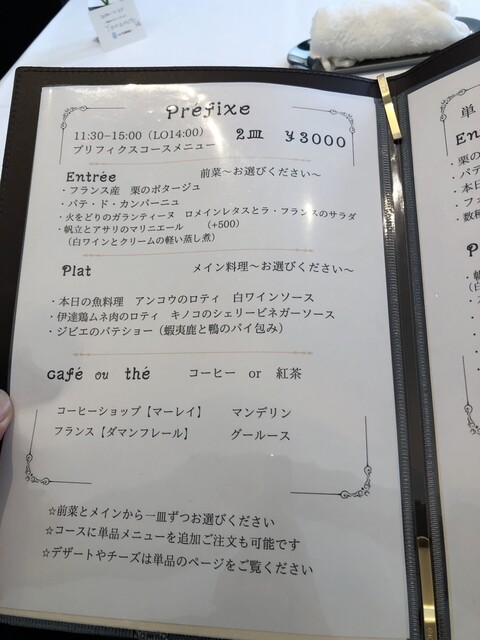 Préfixe
11:30-15:00（LO14:00） 2皿 ¥3000
プリフィクスコースメニュー
Entrée 前菜～お選びください～
・フランス産 栗のポタージュ
・パテ・ド・カンパーニュ
・火をどりのガランティーヌ ロメインレタスとラ・フランスのサラダ
・帆立とアサリのマリニエール （+500）
（白ワインとクリームの軽い蒸し煮）
Plat メイン料理～お選びください～
・本日の魚料理 アンコウのロティ 白ワインソース
・伊達鶏ムネ肉のロティ キノコのシェリービネガーソース
・ジビエのパテショー（蝦夷鹿と鴨のパイ包み）
Café ou thé コーヒー or 紅茶
コーヒーショップ【マーレイ】 マンデリン
フランス【ダマンフレール】 グールース
☆前菜とメインから一皿ずつお選びください
☆コースに単品メニューを追加ご注文も可能です
☆デザートやチーズは単品のページをご覧ください
単
En
栗の
パテ
本日
フォ
数種
P